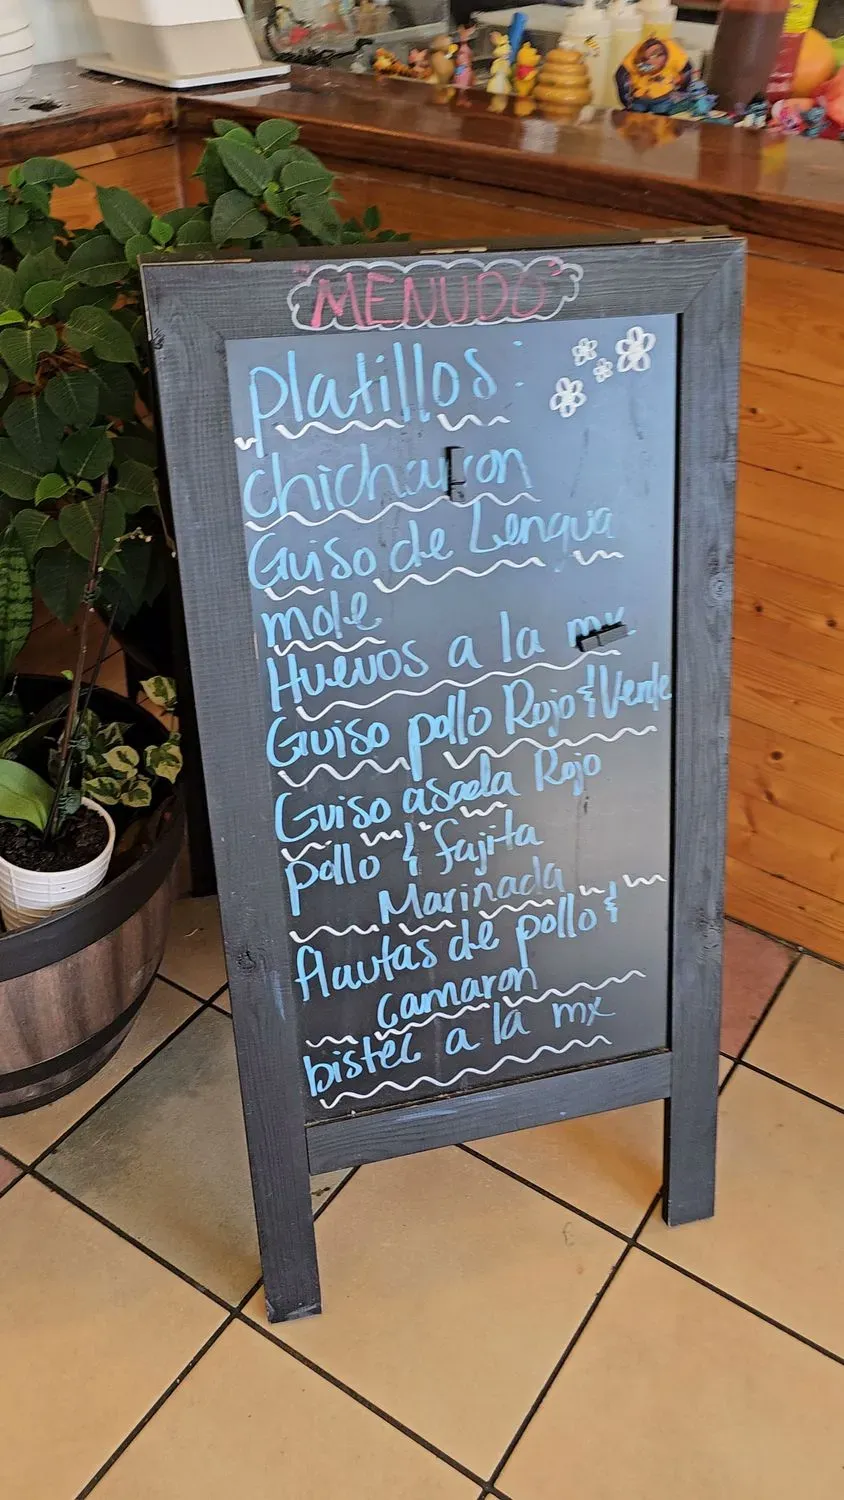 "MENUDO"
Platillos:
chicharron
Guiso de Lengua
mole
Huevos a la mx
Guiso pollo Rojo & Verde
Guiso asada Rojo
pollo & fajita
Marinada
flautas de pollo &
camaron
bistec a la mx